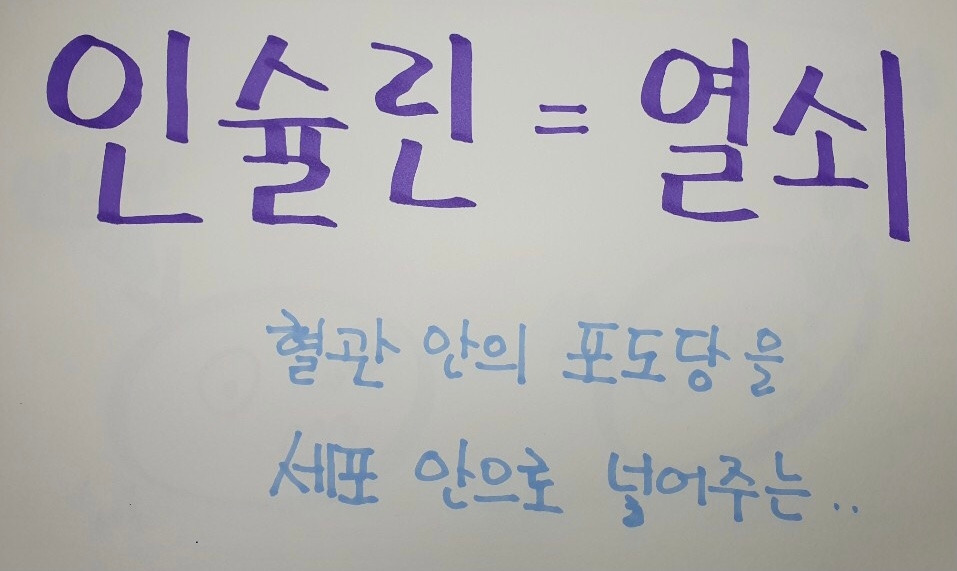 인슐린 = 열쇠
혈관 안의 포도당을
세포 안으로 넣어주는..